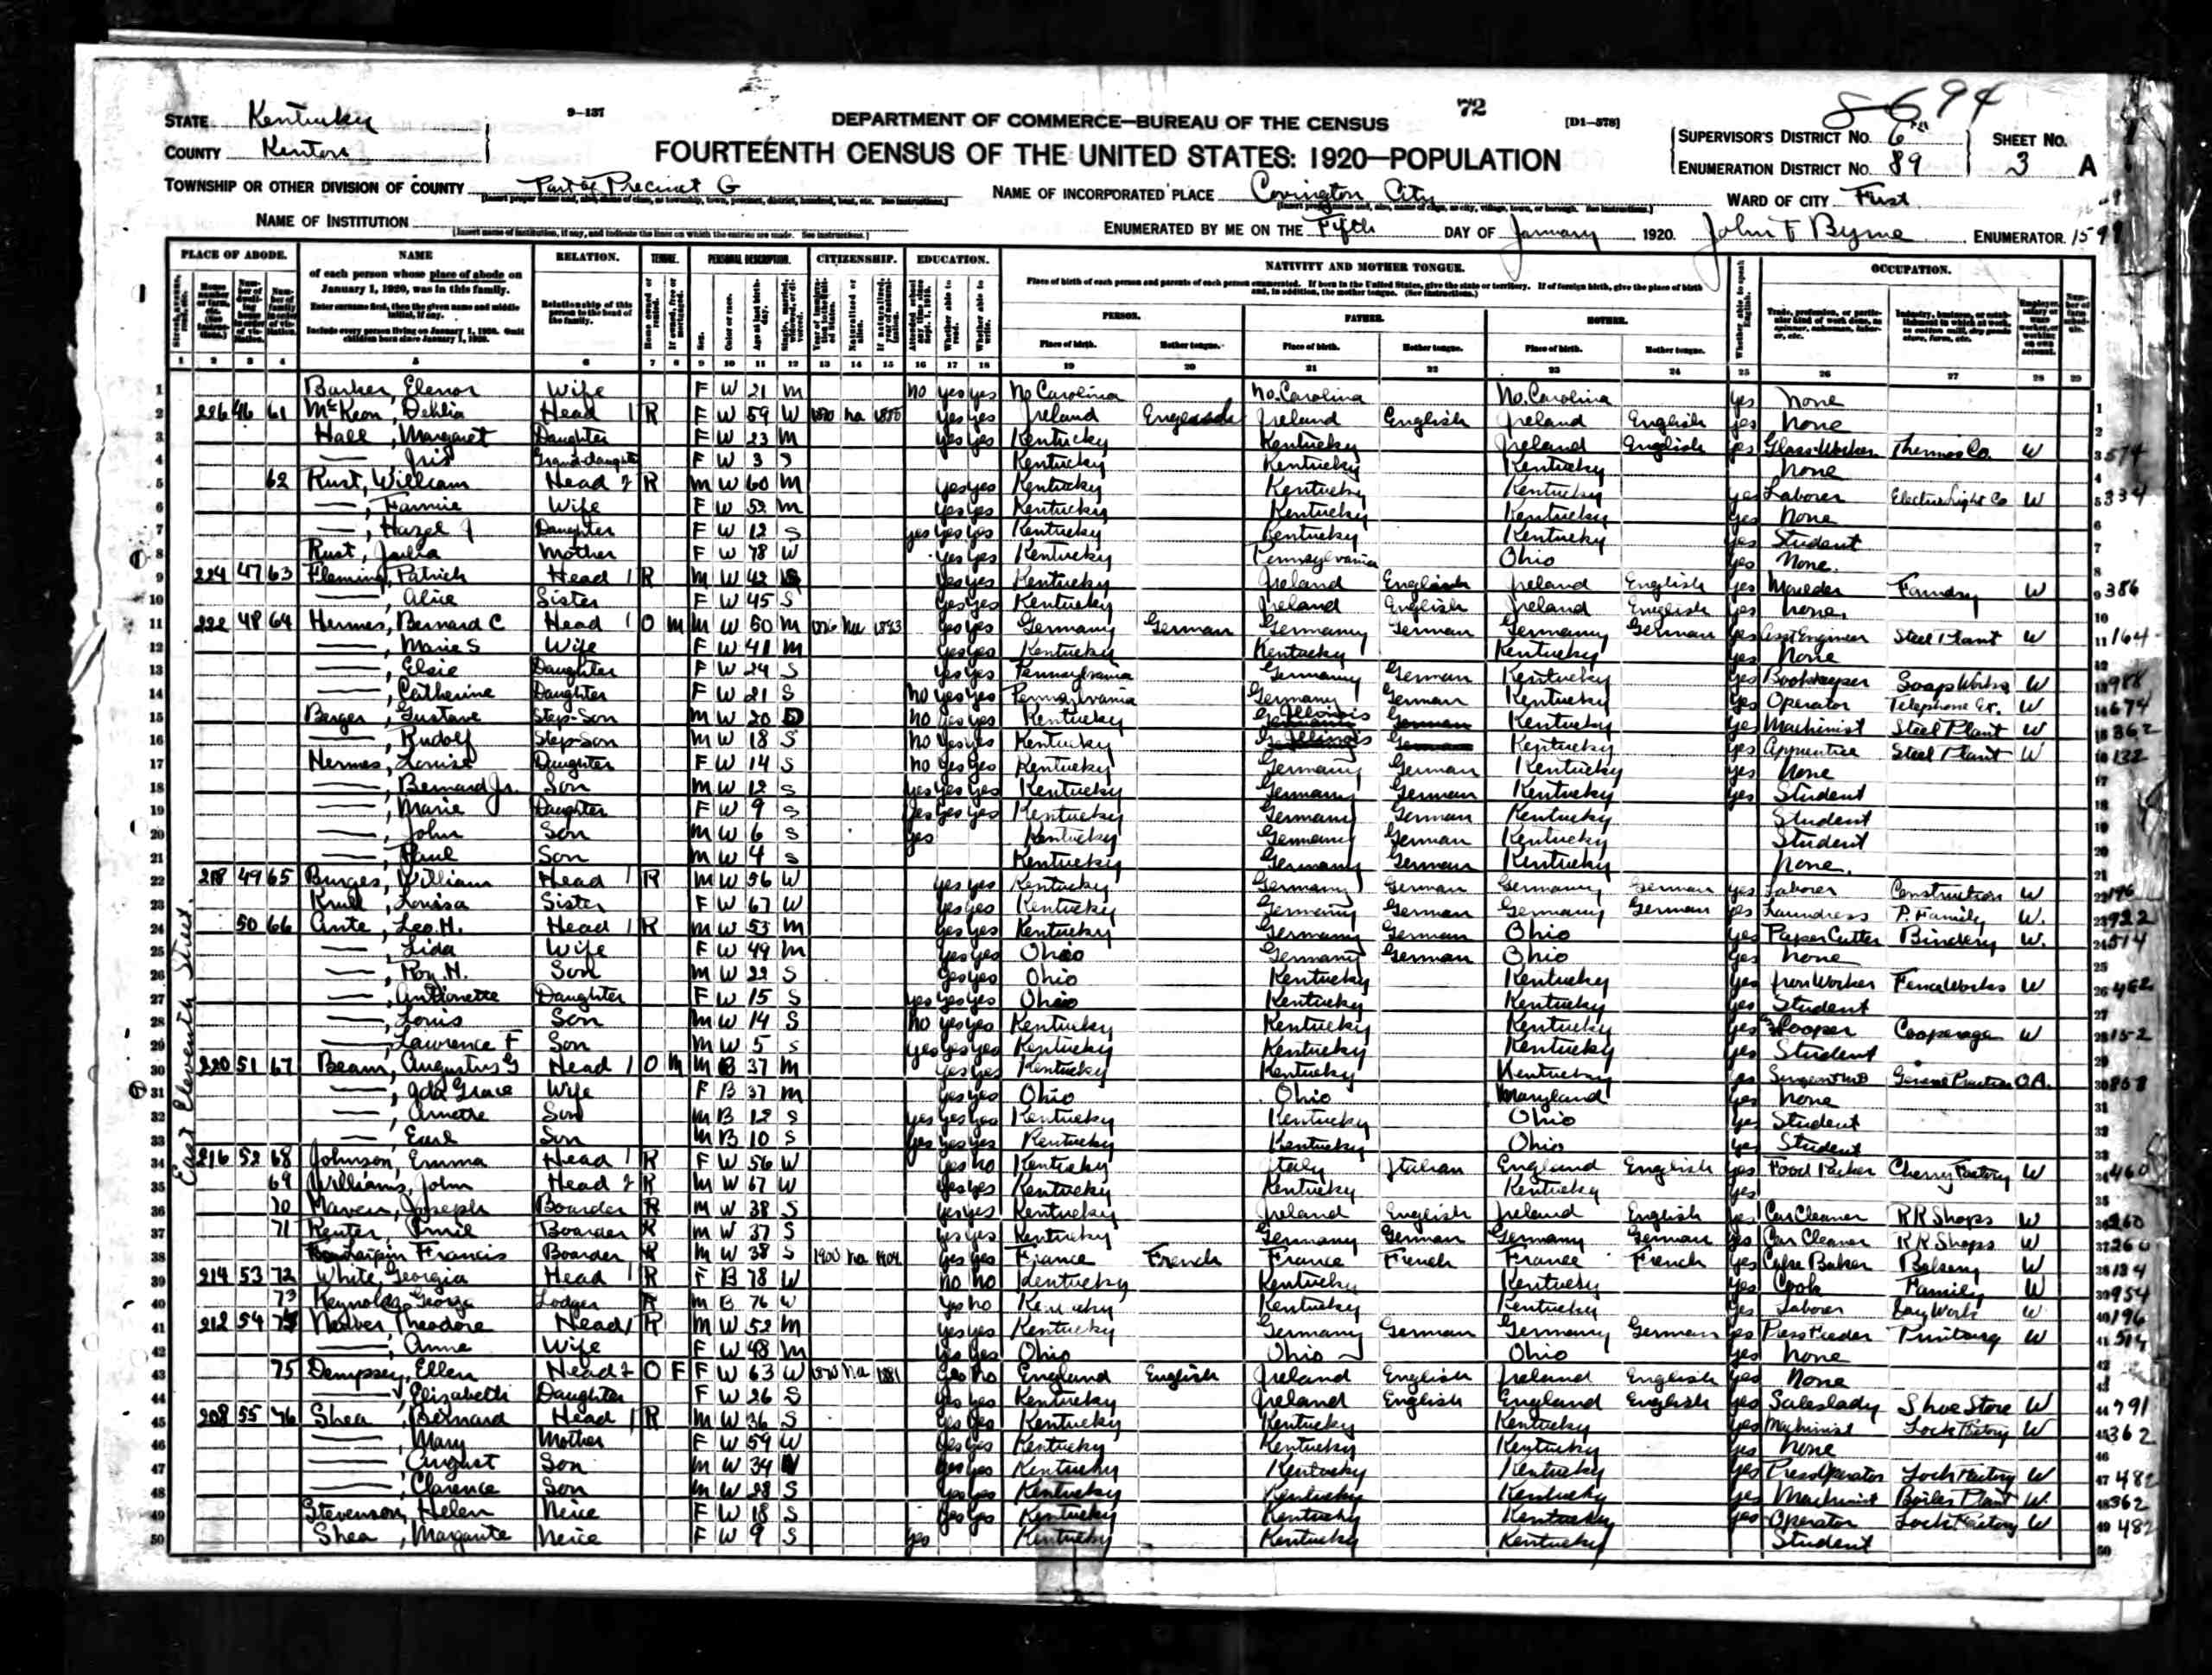 8694
STATE Kentucky 9-137 DEPARTMENT OF COMMERCE—BUREAU OF THE CENSUS 72 [D1-578] SUPERVISOR'S DISTRICT No. 6th SHEET No.
COUNTY Kenton FOURTEENTH CENSUS OF THE UNITED STATES: 1920—POPULATION ENUMERATION DISTRICT No. 89 3 A
TOWNSHIP OR OTHER DIVISION OF COUNTY Part of Precinct G NAME OF INCORPORATED PLACE Covington City WARD OF CITY First
NAME OF INSTITUTION ENUMERATED BY ME ON THE Fifth DAY OF January 1920. John F Byrne ENUMERATOR.
PLACE OF ABODE. NAME RELATION. TENURE. PERSONAL DESCRIPTION. CITIZENSHIP. EDUCATION. NATIVITY AND MOTHER TONGUE. OCCUPATION.
of each person whose place of abode on January 1, 1920, was in this family.
Enter surname first, then the given name and middle initial, if any.
Include every person living on January 1, 1920. Omit children born since January 1, 1920.
Relationship of this person to the head of the family.
Place of birth of each person and parents of each person enumerated. If born in the United States, give the state or territory. If of foreign birth, give the place of birth and, in addition, the mother tongue. (See instructions.)
PERSON. FATHER. MOTHER.
Place of birth. Mother tongue. Place of birth. Mother tongue. Place of birth. Mother tongue.
1 2 3 4 5 6 7 8 9 10 11 12 13 14 15 16 17 18 19 20 21 22 23 24 25 26 27 28 29
East Eleventh Street.
1 Barker, Elenor Wife F W 21 M no yes yes No Carolina No. Carolina No. Carolina yes None
2 226 46 61 McKeon, Dehlia Head 1 R F W 59 W na yes yes Ireland English Ireland English Ireland English yes None
3 Hall, Margaret Daughter F W 23 M yes yes Kentucky Kentucky Ireland English yes Glass Worker Thermos Co. W 574
4 —, Iris Granddaughter F W 3 S Kentucky Kentucky Kentucky None
5 62 Rust, William Head 2 R M W 60 M yes yes Kentucky Kentucky Kentucky yes Laborer Electric Light Co W 334
6 —, Fannie Wife F W 52 M yes yes Kentucky Kentucky Kentucky yes None
7 —, Hazel J Daughter F W 12 S yes yes yes Kentucky Kentucky Kentucky yes Student
8 Rust, Julia Mother F W 78 W yes yes Kentucky Pennsylvania Ohio yes None.
9 224 47 63 Fleming, Patrick Head 1 R M W 42 yes yes Kentucky Ireland English Ireland English yes Moulder Foundry W 386
10 —, Alice Sister F W 45 S yes yes Kentucky Ireland English Ireland English yes None.
11 222 48 64 Hermes, Bernard C Head 1 O M M W 50 M 1893 yes yes Germany German Germany German Germany German yes Asst Engineer Steel Plant W 164
12 —, Marie S Wife F W 41 M yes yes Kentucky Kentucky Kentucky yes None
13 —, Elsie Daughter F W 24 S yes yes Pennsylvania Germany German Kentucky yes Bookkeeper Soap Works W 988
14 —, Catherine Daughter F W 21 S no yes yes Pennsylvania Germany German Kentucky yes Operator Telephone Ex. W 674
15 Berger, Gustave Step-Son M W 20 D no yes yes Kentucky Illinois Kentucky yes Machinist Steel Plant W 362
16 —, Rudolf Step-Son M W 18 S no yes yes Kentucky Illinois Kentucky yes Apprentice Steel Plant W 132
17 Hermes, Louise Daughter F W 14 S no yes yes Kentucky Germany German Kentucky yes None
18 —, Bernard Jr. Son M W 12 S yes yes yes Kentucky Germany German Kentucky yes Student
19 —, Marie Daughter F W 9 S yes yes yes Kentucky Germany German Kentucky Student
20 —, John Son M W 6 S yes Kentucky Germany German Kentucky Student
21 —, Paul Son M W 4 S Kentucky Germany German Kentucky None.
22 218 49 65 Burges, William Head 1 R M W 56 W yes yes Kentucky Germany German Germany German yes Laborer Construction W 196
23 Krull, Louisa Sister F W 67 W yes yes Kentucky Germany German Germany German yes Laundress P. Family W. 922
24 50 66 Ante, Leo H. Head 1 R M W 53 M yes yes Kentucky Germany German Ohio yes Paper Cutter Bindery W. 514
25 —, Lida Wife F W 49 M yes yes Ohio Germany German Ohio yes None
26 —, Roy H. Son M W 22 S yes yes Ohio Kentucky Kentucky yes Iron Worker Fence Works W 462
27 —, Antionette Daughter F W 15 S yes yes yes Ohio Kentucky Kentucky yes Student
28 —, Louis Son M W 14 S no yes yes Kentucky Kentucky Kentucky yes Cooper Cooperage W 152
29 —, Lawrence F Son M W 5 S yes yes yes Kentucky Kentucky Kentucky yes Student
30 220 51 67 Beam, Augustus G Head 1 O M M B 37 M yes yes Kentucky Kentucky Kentucky yes General Practice OA.
31 —, Ida Grace Wife F B 37 M yes yes Ohio Ohio Maryland yes None
32 — Son M B 12 S yes yes yes Kentucky Kentucky Ohio yes Student
33 —, Earl Son M B 10 S yes yes yes Kentucky Kentucky Ohio yes Student
34 216 52 68 Johnson, Emma Head 1 R F W 56 W yes no Kentucky Italy Italian England English yes Food Packer Cherry Factory W 460
35 69 Williams, John Head 2 R M W 67 W yes yes Kentucky Kentucky Kentucky yes
36 70 Maven, Joseph Boarder R M W 38 S yes yes Kentucky Ireland English Ireland English yes Car Cleaner RR Shops W 260
37 71 Reuter, Emil Boarder R M W 37 S yes yes Kentucky Germany German Germany German yes Car Cleaner RR Shops W 260
38 Francis Boarder R M W 38 S 1900 na 1904 yes yes France French France French France French yes Baker W
39 214 53 72 White, Georgia Head 1 R F B 78 W no no Kentucky Kentucky Kentucky yes Cook Family W 954
40 73 Reynolds, George Lodger R M B 76 W yes no Kentucky Kentucky Kentucky yes Laborer Day Work W 196
41 212 54 Theodore Head 1 R M W 52 M yes yes Kentucky Germany German Germany German yes Press Feeder Printing W
42 —, Anna Wife F W 48 M yes yes Ohio Ohio Ohio yes None
43 75 Dempsey, Ellen Head 2 O F F W 63 W 1870 na 1881 yes no England English Ireland English Ireland English yes None
44 —, Elizabeth Daughter F W 26 S yes yes Kentucky Ireland English England English yes Saleslady Shoe Store W 791
45 208 55 76 Shea, Bernard Head 1 R M W 36 S yes yes Kentucky Kentucky Kentucky yes Machinist Lock Factory W 362
46 —, Mary Mother F W 59 W yes yes Kentucky Kentucky Kentucky yes None
47 —, August Son M W 34 yes yes Kentucky Kentucky Kentucky yes Press Operator Lock Factory W 482
48 —, Clarence Son M W 28 S yes yes Kentucky Kentucky Kentucky yes Machinist Boiler Plant W. 362
49 Stevenson, Helen Neice F W 18 S yes yes Kentucky Kentucky Kentucky yes Operator Lock Factory W 482
50 Shea, Margarite Neice F W 9 S yes Kentucky Kentucky Kentucky Student